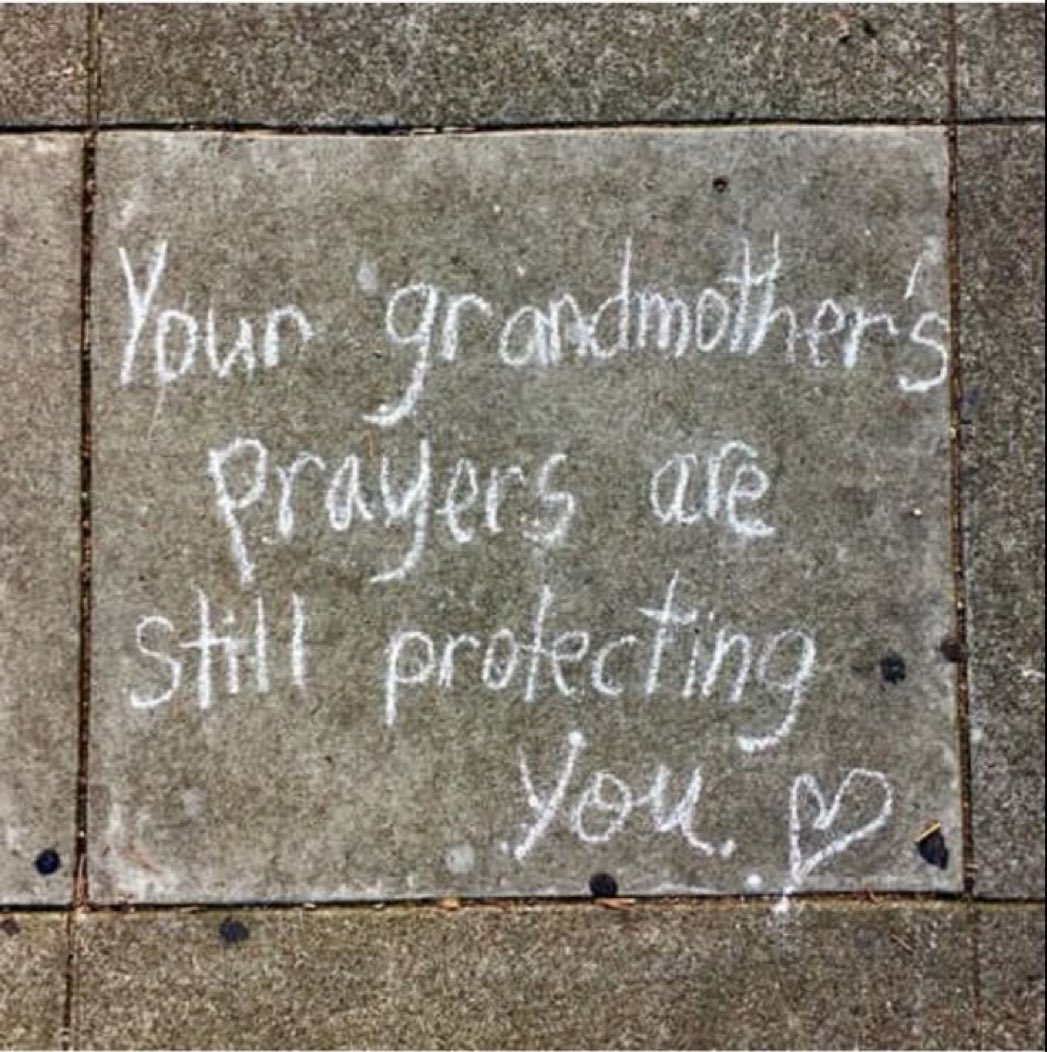 Your grandmother's
prayers are
still protecting
you.